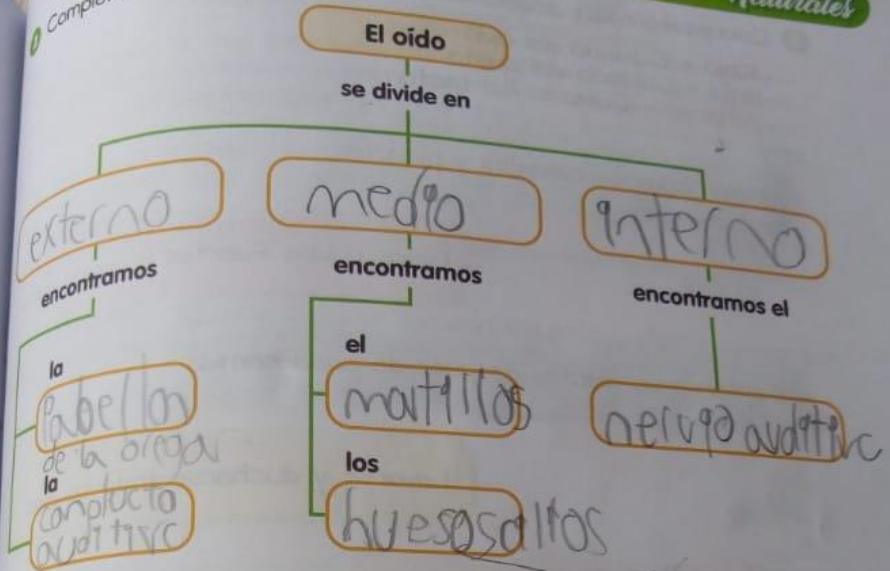 Comple
Naturales
El oído
se divide en
externo
medio
interno
encontramos
encontramos
encontramos el
la
Pabellon
de la oregar
la
conplucto
auditivo
el
martillos
los
huesosaltos
nervio auditivo